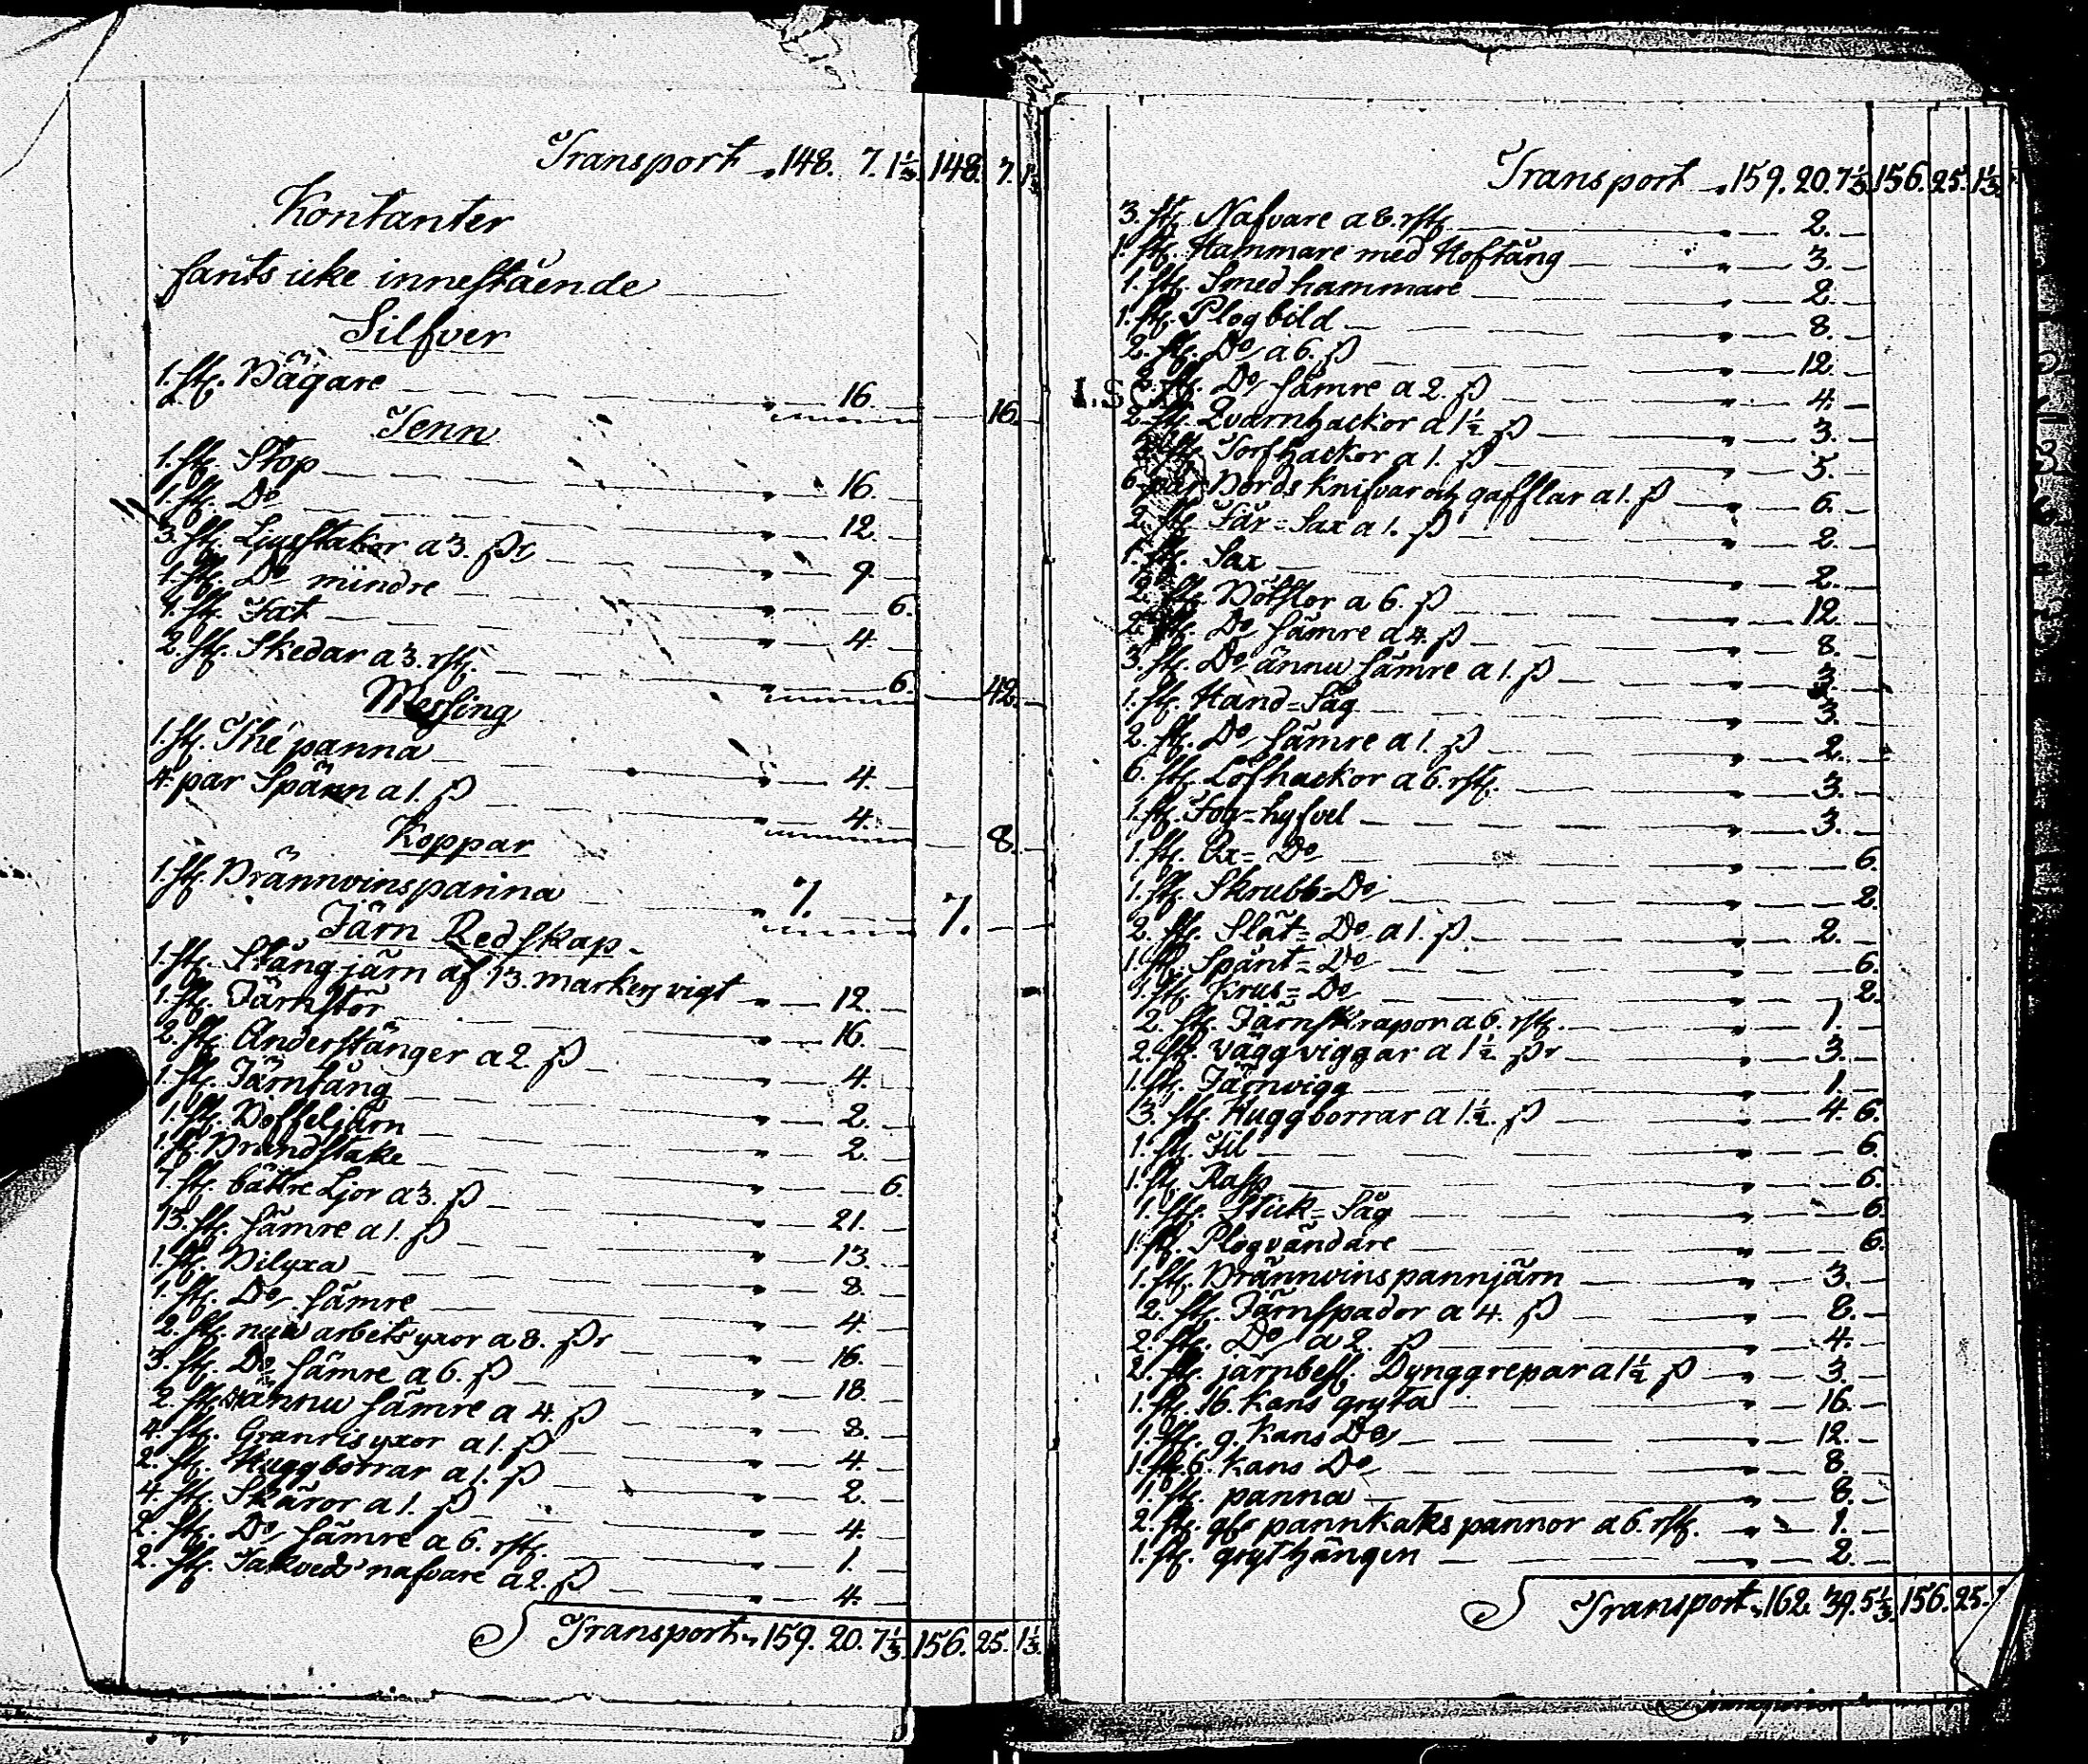 Transport „ 148. 7. 1⅓. 148. 7. 1⅓
Kontanter
fants icke innestående
Silfver
1. st. Bägare „ 16. 16.
Tenn
1. st. Stop „ 16.
1. st. Do „ 12.
3. st. Ljusstakar a 3. ßr „ 9.
1. st. Do mindre „ 6.
1. st. Fat „ 4.
2. st. Skedar a 3. rst. „ 6. 42.
Messing
1. st. Thé panna „ 4.
4. par Spänn a 1. ß „ 4. 8.
Koppar
1. st. Brännvinspanna „ 7. 7.
Järn Redskap
1. st. Stångjärn af 13. markers vigt „ 12.
1. st. Järnstör „ 16.
2. st. Anderstänger a 2. ß „ 4.
1. st. Järntång „ 2.
1. st. Böffeljärn „ 2.
1. st. Brandstake „ 6.
7. st. bättre Ljor a 3. ß „ 21.
13. st. sämre a 1. ß „ 13.
1. st. Bilyxa „ 8.
1. st. Do sämre „ 4.
2. st. nya arbetsyxor a 8. ßr „ 16.
3. st. Do sämre a 6. ß „ 18.
2. st. ännu sämre a 4. ß „ 8.
4. st. Granrisyxor a 1. ß „ 4.
2. st. Huggborrar a 1. ß „ 2.
4. st. Skäror a 1. ß „ 4.
2. st. Do sämre a 6. rst. „ 1.
2. st. Takveds nafvare a 2. ß „ 4.
Transport „ 159. 20. 7⅓. 156. 25. 1⅓.
Transport „ 159. 20. 7⅓ 156. 25. 1⅓
3. st. Nafvare a 8. rst. „ 2.
1. st. Hammare med Hoftång „ 3.
1. st. Smedhammare „ 2.
1. st. Plogbild „ 8.
2. st. Do a 6. ß „ 12.
2. st. Do sämre a 2. ß „ 4.
2. st. Qvarnhackor a 1½ ß „ 3.
st. Torfhackor a 1. ß „ 5.
6. par Bords knifvar och gafflar a 1. ß „ 6.
2. st. Får=Sax a 1. ß „ 2.
1. st. Sax „ 2.
2. st. Böſsor a 6. ß „ 12.
2. st. Do sämre a 4. ß „ 8.
3. st. Do ännu sämre a 1. ß „ 3.
1. st. Hand=Såg „ 3.
2. st. Do sämre a 1. ß „ 2.
6. st. Löfhackor a 6. rst. „ 3.
1. st. Fog=hyfvel „ 3.
1. st. Ox= Do „ 6.
1. st. Skrubb=Do „ 2.
2. st. Slät= Do a 1. ß „ 2.
1. st. Spånt= Do „ 6.
1. st. Krus= Do „ 2.
2. st. Järnskrapor a 6. rst. „ 1.
2. st. väggviggar a 1½ ßr „ 3.
1. st. Järnvigg „ 1.
3. st. Huggborrar a 1½. ß „ 4. 6.
1. st. Fil „ 6.
1. st. Rasp „ 6.
1. st. Stick=Såg „ 6.
1. st. Plogvändare „ 6.
1. st. Brännvinspannjärn „ 3.
2. st. Järnspador a 4. ß „ 8.
2. st. Do a 2. ß „ 4.
2. st. järnbesl. Dynggrepar a 1½ ß „ 3.
1. st. 16. kans gryta „ 16.
1. st. 9. kans Do „ 12.
1. st. 6. kans Do „ 8.
1. st. panna „ 8.
2. st. pannkaks pannor a 6. rst. „ 1.
1. st. grythängen „ 2.
Transport „ 162. 39. 5⅓. 156. 25.